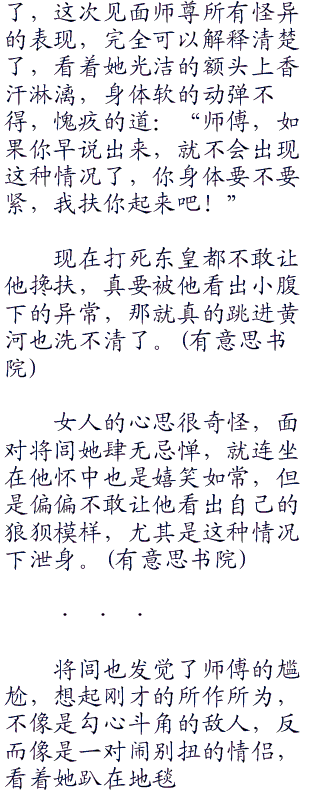 了，这次见面师尊所有怪异
的表现，完全可以解释清楚
了，看着她光洁的额头上香
汗淋漓，身体软的动弹不
得，愧疚的道：“师傅，如
果你早说出来，就不会出现
这种情况了，你身体要不要
紧，我扶你起来吧！”
现在打死东皇都不敢让
他搀扶，真要被他看出小腹
下的异常，那就真的跳进黄
河也洗不清了。(有意思书
院)
女人的心思很奇怪，面
对将闾她肆无忌惮，就连坐
在他怀中也是嬉笑如常，但
是偏偏不敢让他看出自己的
狼狈模样，尤其是这种情况
下泄身。(有意思书院)
· · ·
将闾也发觉了师傅的尴
尬，想起刚才的所作所为，
不像是勾心斗角的敌人，反
而像是一对闹别扭的情侣，
看着她趴在地毯